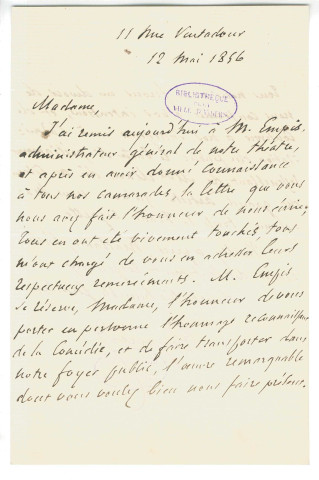 11 Rue Ventadour
12 Mai 1856
BIBLIOTHÈQUE
VILLE D'ANGERS
Madame,
J'ai remis aujourd'hui à M. Empis
administrateur général de notre théâtre,
et après en avoir donné connaissance
à tous nos camarades, la lettre que vous
nous avez fait l'honneur de nous écrire,
Tous en ont été vivement touchés, tous
m'ont chargé de vous en adresser leurs
respectueux remerciements. M. Empis
se réserve, Madame, l'honneur de vous
porter en personne l'hommage reconnaissant
de la Comédie, et de faire transporter dans
notre foyer public, l'œuvre remarquable
dont vous voulez bien nous faire présent.